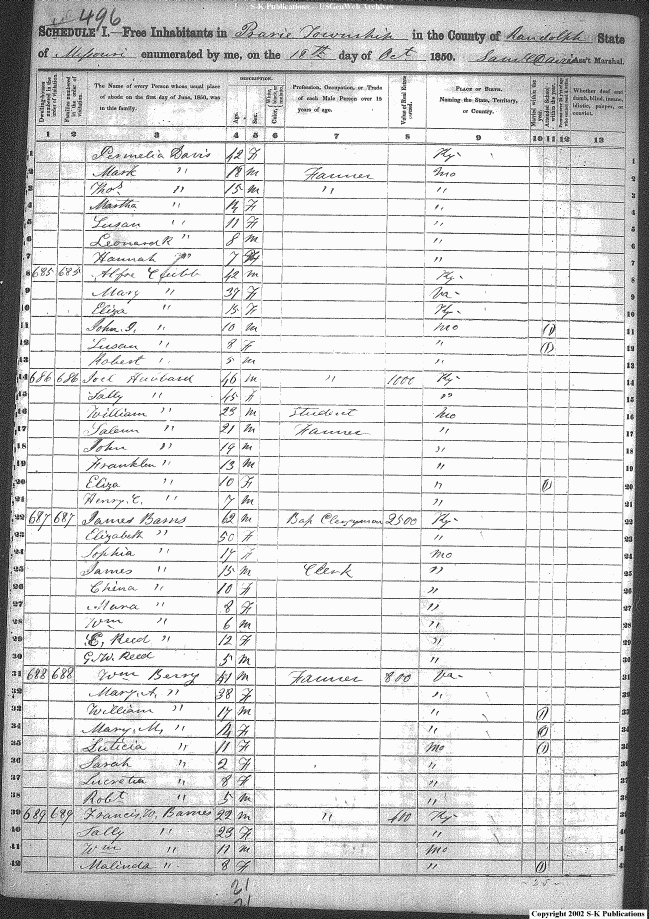 S-K Publications - USGenWeb Archives
496
SCHEDULE I.—Free Inhabitants in Township in the County of Randolph State
of Missouri enumerated by me, on the 18th day of Oct 1850. Ass't Marshal.
Dwelling-houses numbered in the order of visitation.
Families numbered in the order of visitation.
The Name of every Person whose usual place of abode on the first day of June, 1850, was in this family.
DESCRIPTION.
Age.
Sex.
Color, White, black, or mulatto.
Profession, Occupation, or Trade of each Male Person over 15 years of age.
Value of Real Estate owned.
PLACE OF BIRTH. Naming the State, Territory, or Country.
Married within the year.
Attended School within the year.
Whether deaf and dumb, blind, insane, idiotic, pauper, or convict.
1 2 3 4 5 6 7 8 9 10 11 12 13
1 Permelia Davis 42 F Ky- 1
2 Mark " 18 m Farmer Mo 2
3 Thos " 15 m " " 3
4 Martha " 14 F " 4
5 Susan " 11 F " 5
6 Leonard R " 8 m " 6
7 Hannah 7 " 7
8 685 685 42 m Ky- 8
9 Mary " 37 F Va- 9
10 Eliza " 15 F Ky- 10
11 John " 10 m Mo 11
12 Susan " 8 F " 12
13 Robert " 5 m " 13
14 686 686 Joel Hubbard 46 m " 1000 Ky- 14
15 Sally " 45 F " 15
16 William " 23 m Student Mo 16
17 " 21 m Farmer " 17
18 John " 19 m " 18
19 Franklin " 13 m " 19
20 Eliza " 10 F " 20
21 Henry C. " 7 m " 21
22 687 687 James Barns 62 m Bap Clergyman 2500 Ky- 22
23 Elizabeth " 50 F " 23
24 Sophia " 17 F Mo 24
25 James " 15 m Clerk " 25
26 China " 10 F " 26
27 " 8 F " 27
28 Wm " 6 m " 28
29 E, Reed " 12 F " 29
30 G.W. Reed 5 m " 30
31 688 688 Wm Berry 41 m Farmer 800 Va- 31
32 Mary A " 38 F " 32
33 William " 17 m " 33
34 Mary, M, " 14 F " 34
35 Luticia " 11 F Mo 35
36 Sarah " 2 F " 36
37 Lucretia " 8 F " 37
38 Robt " 5 m " 38
39 689 689 Francis W. Barnes 22 m " Ky- 39
40 Sally " 23 F "
41 Wm " 11 m Mo
42 Malinda " 8 F "
21
21
Copyright 2002 S-K Publications